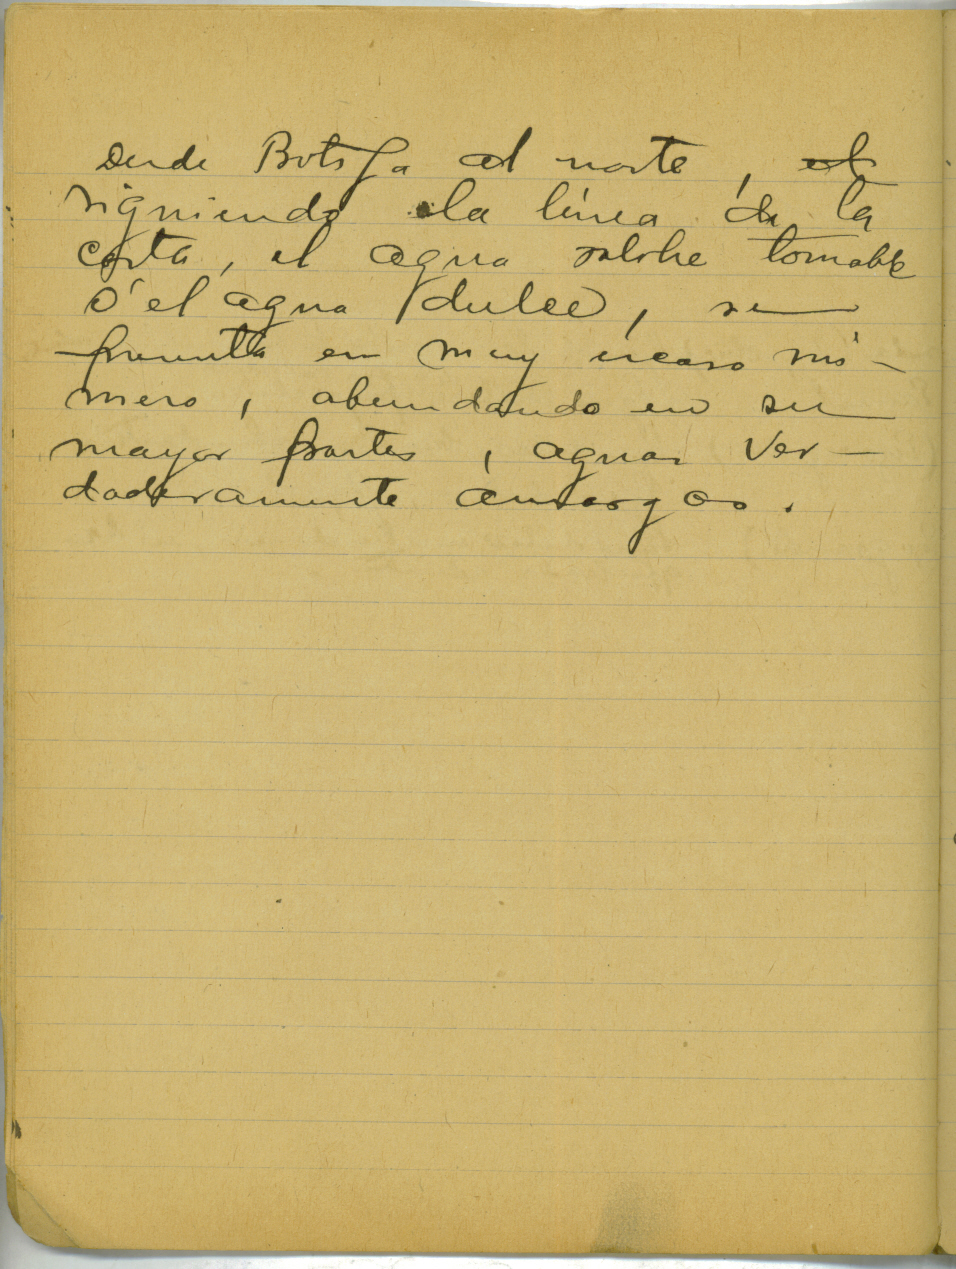 Desde al norte, el
siguiendo la línea de la
costa, el agua salobre tomable
ó el agua dulce, se
presenta en muy escaso nú-
mero, abundando en su
mayor partes, aguas ver-
daderamente amargas.